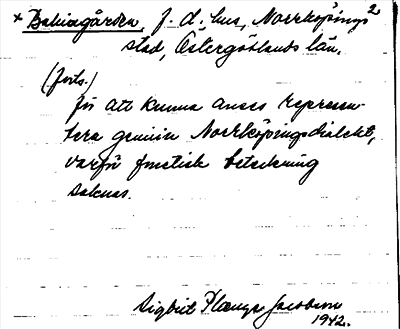 × Bakuagården, f. d. hus, Norrköpings 2
stad, Östergötlands län.
(forts.)
för att kunna anses represen-
tera genuin Norrköpingsdialekt,
varför fonetisk beteckning
saknas.
Sigbrit Plænge Jacobson
1942.